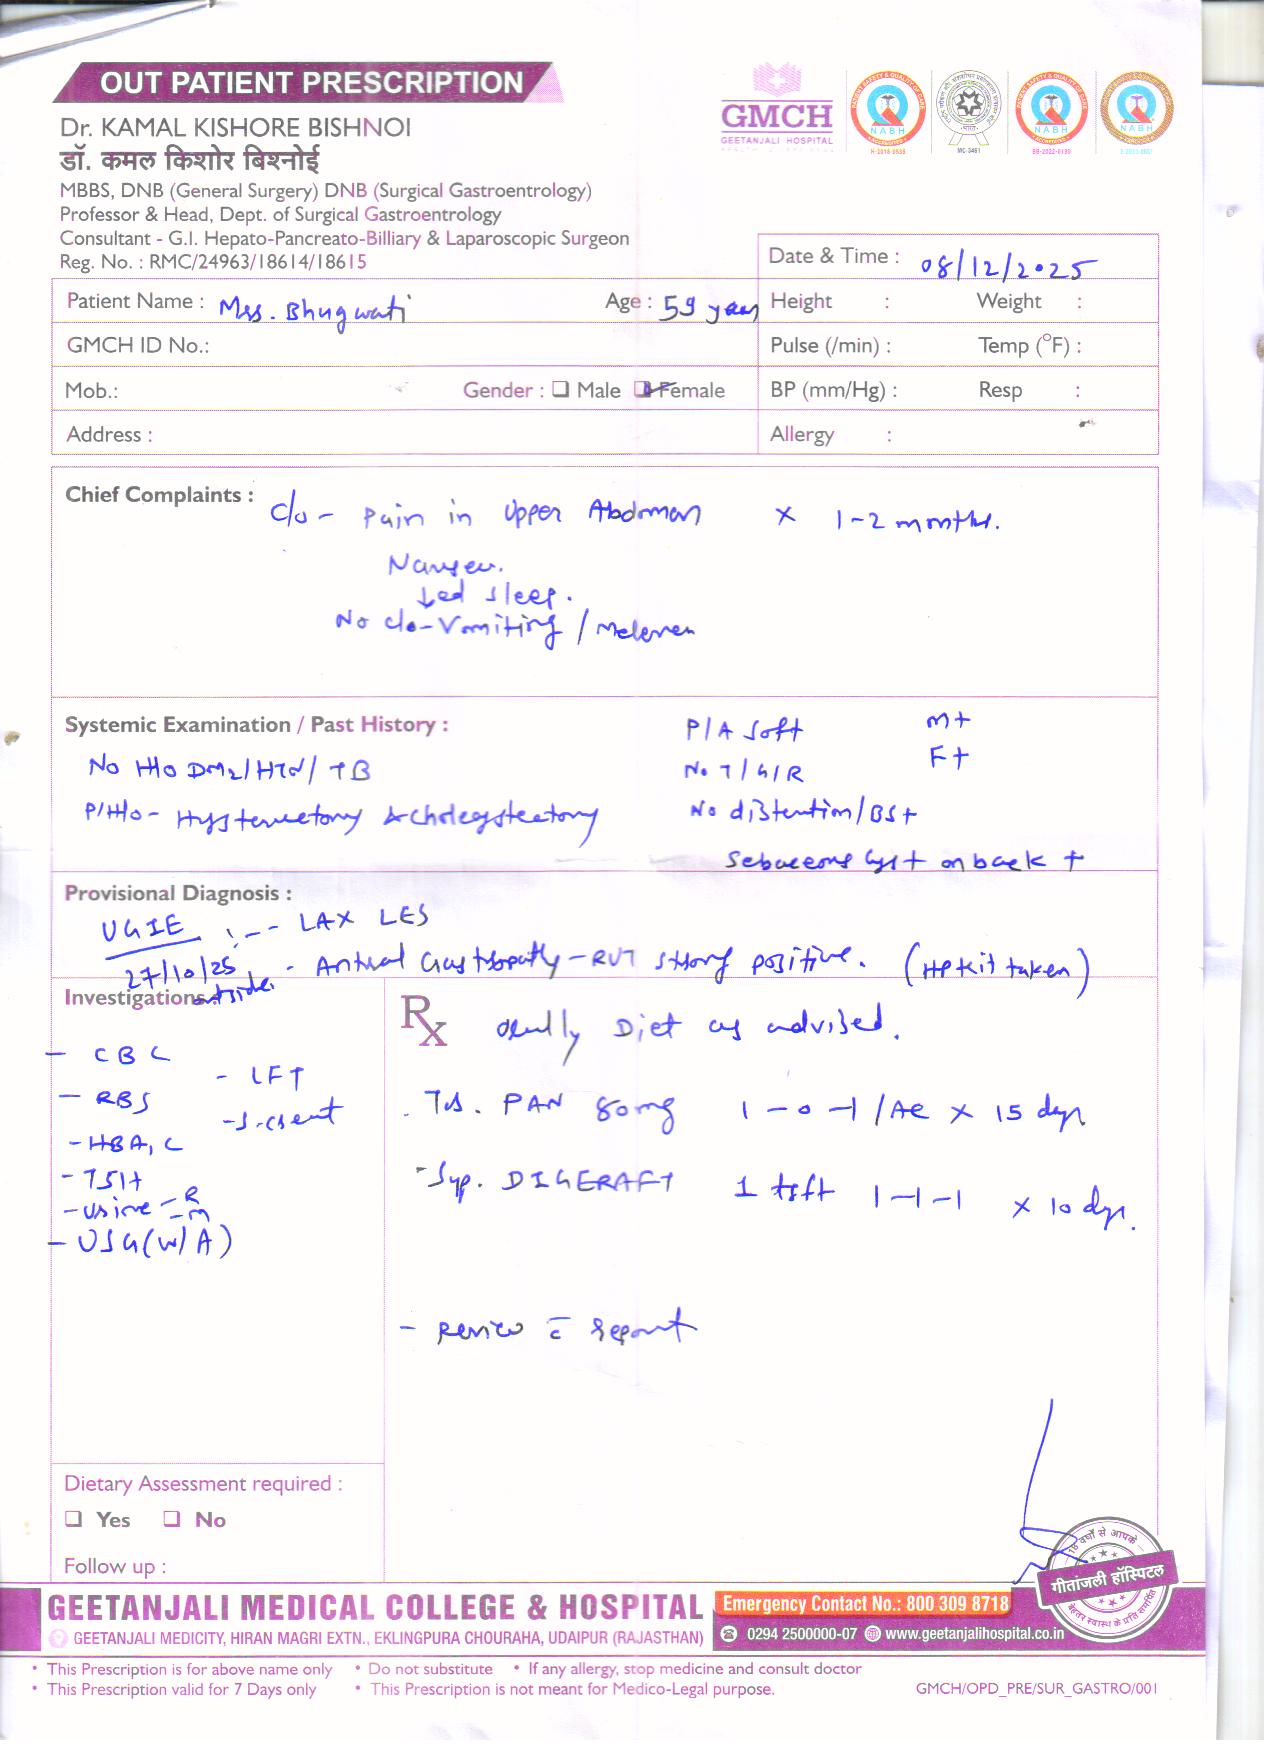 OUT PATIENT PRESCRIPTION
GMCH
GEETANJALI HOSPITAL
NABH
H-2018-0536
MC-3461
NABH
BB-2022-0130
NABH
Dr. KAMAL KISHORE BISHNOI
डॉ. कमल किशोर बिश्नोई
MBBS, DNB (General Surgery) DNB (Surgical Gastroentrology)
Professor & Head, Dept. of Surgical Gastroentrology
Consultant - G.I. Hepato-Pancreato-Billiary & Laparoscopic Surgeon
Reg. No. : RMC/24963/18614/18615
Date & Time : 08/12/2025
Patient Name : Mrs. Bhugwati Age : 59 years Height : Weight :
GMCH ID No.: Pulse (/min) : Temp (°F) :
Mob.: Gender : Male Female BP (mm/Hg) : Resp :
Address : Allergy :
Chief Complaints : c/o - Pain in upper Abdoman x 1-2 months.
Nausea.
↓ed sleep.
No c/o - Vomiting / melena
Systemic Examination / Past History : P/A Soft M+
No H/o DM2/HTN/TB No T/G/R F+
P/H/o - Hysterectomy & cholecystectomy No distention/BS+
Sebaceous cyst on back +
Provisional Diagnosis :
UGIE - LAX LES
27/10/25 - Antral Gastropathy - RUT strong positive. (HP Kit taken)
outside.
Investigations :
- CBC
- LFT
- RBS
- S. creat
- HBA1C
- TSH
- urine - R
- m
- USG (W/A)
Rx Diet as advised.
- Tab. PAN 80mg 1-0-1 /AC x 15 days
- Syp. DIGERAFT 1 tsft 1-1-1 x 10 days.
- Review c̄ report
Dietary Assessment required :
Yes No
Follow up :
18 वर्षों से आपके
गीतांजली हॉस्पिटल
बेहतर स्वास्थ के प्रति समर्पित
GEETANJALI MEDICAL COLLEGE & HOSPITAL
GEETANJALI MEDICITY, HIRAN MAGRI EXTN., EKLINGPURA CHOURAHA, UDAIPUR (RAJASTHAN)
Emergency Contact No.: 800 309 8718
0294 2500000-07 www.geetanjalihospital.co.in
• This Prescription is for above name only • Do not substitute • If any allergy, stop medicine and consult doctor
• This Prescription valid for 7 Days only • This Prescription is not meant for Medico-Legal purpose.
GMCH/OPD_PRE/SUR_GASTRO/001